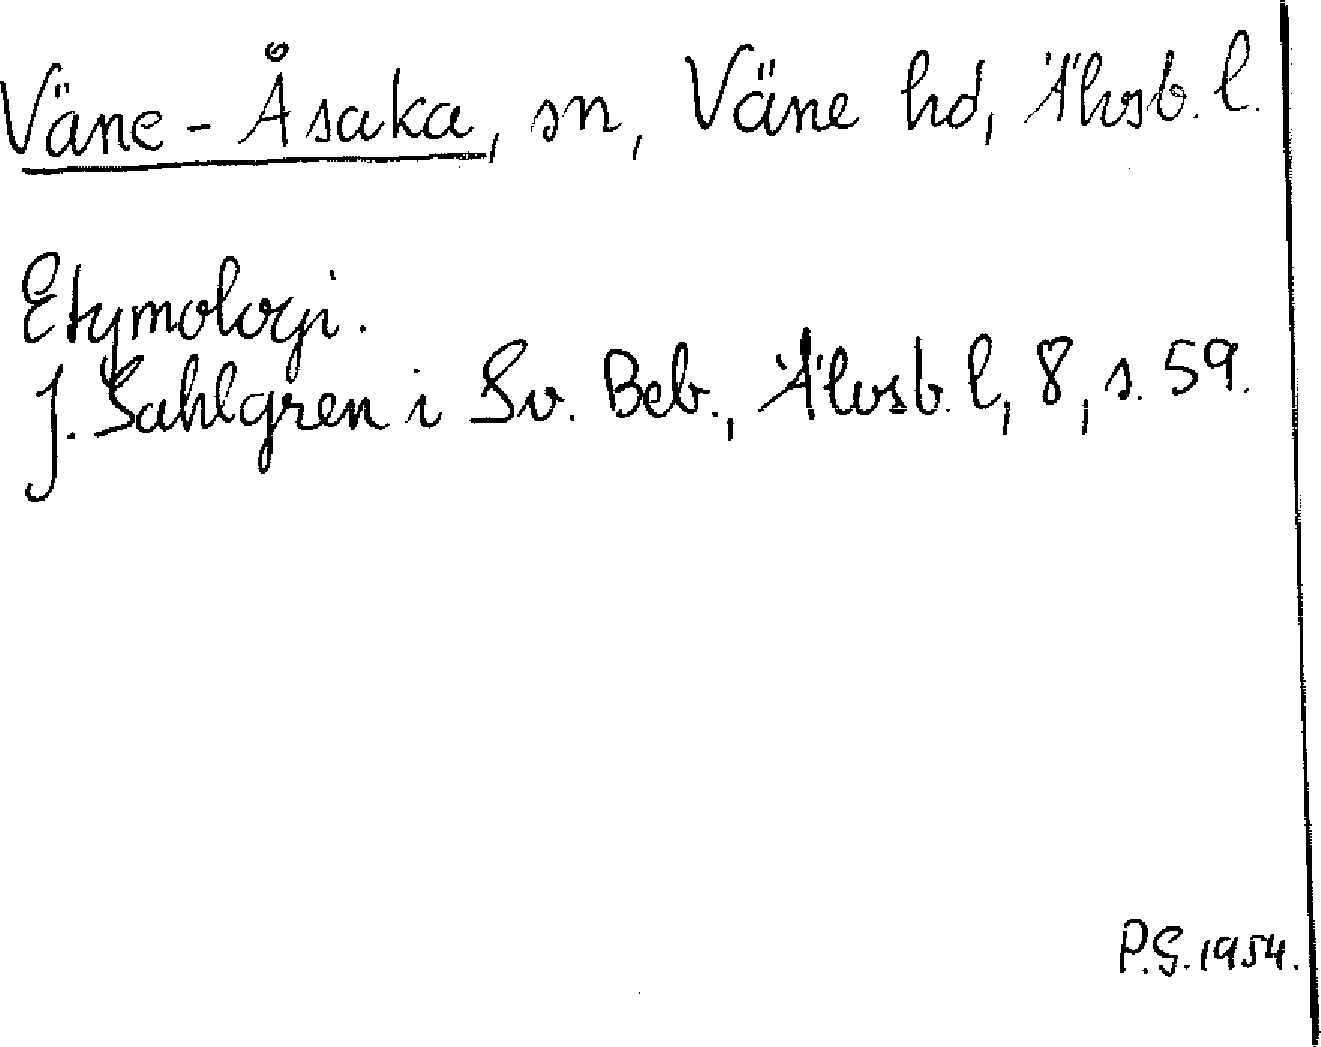 Väne-Åsaka, sn, Väne hd, Älvsb. l.
Etymologi.
J. Sahlgren i Sv. Beb., Älvsb. l, 8, s. 59.
P.G. 1954.